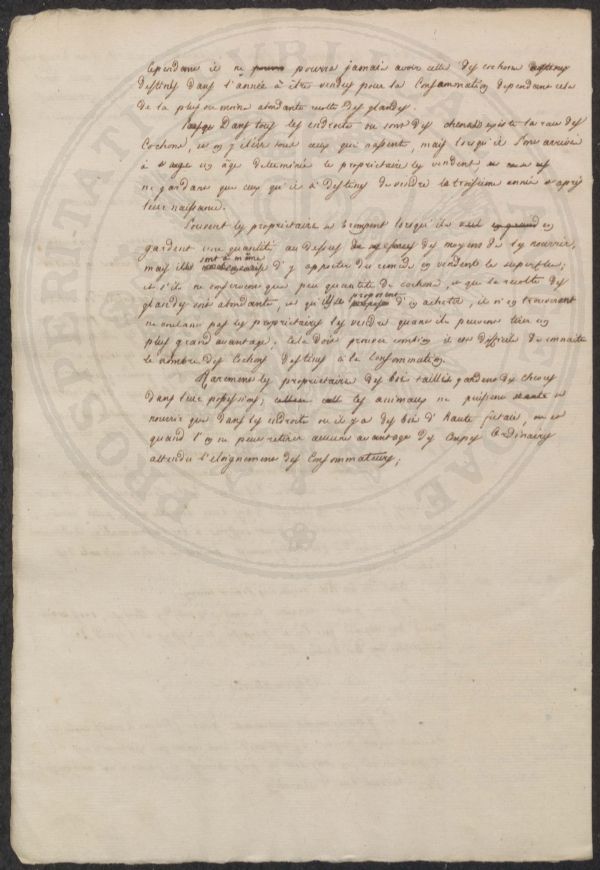 Cependant il ne pourra jamais avoir celle des cochons
destinés dans l'année à être vendus pour la Consommation dependant cela
de la plus ou moins abondante recolte des glandes.
Dans tous les endroits ou sont des chenes existe la race des
Cochons, et on y élève tous ceux qui naissent, mais lorsqu'il sont arrivés
à un age determinée le proprietaire les vendent
ne gardant que ceux qu'il a destinés de vendre la troisieme année après
leur naissance.
Souvent les proprietaire se trompent lorsqu'ils en
gardent une quantité au dessus des moyens de les nourrir,
mais ils sont à même d'y apporter du remede en vendant le superflus;
et s'ils ne conservent que peu quantité de cochons, et que la recolte des
glandes soit abondante, et qu'ils se proposent d'en acheter, il n'en trouveront
ne voulant pas les proprietaires les vendre quand ils peuvent tirer un
plus grand avantage. Cela doit prouver combien il est difficile de connaitre
le nombre des Cochons destinés à la Consommation.
Rarement les proprietaires des bois taillis gardent des chevres
dans leur possessions; les animaux ne puissent se
nourrir que dans les endroits ou il y a des bois d'haute futaie, ou
quand l'on ne peut retirer aucun avantage des Coupes Ordinaires
attendu l'eloignement des Consommateurs;
PROSPERITATI PUBLICAE